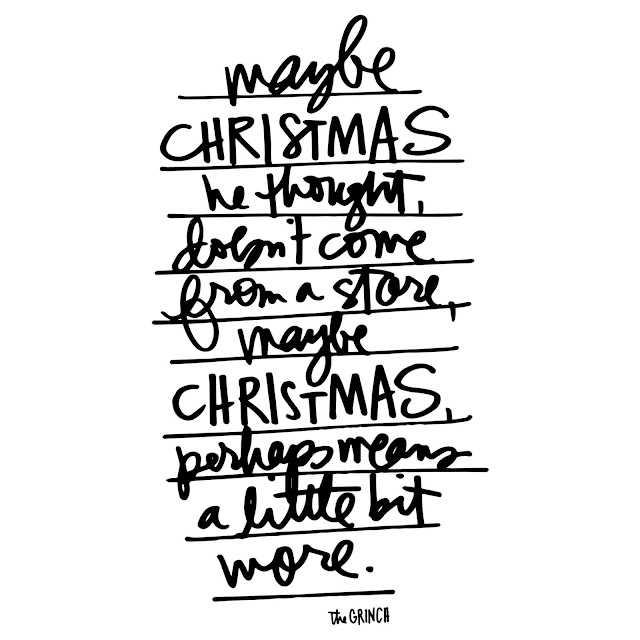 maybe
CHRISTMAS
he thought,
doesn't come
from a store,
maybe
CHRISTMAS,
perhaps means
a little bit
more.
the GRINCH